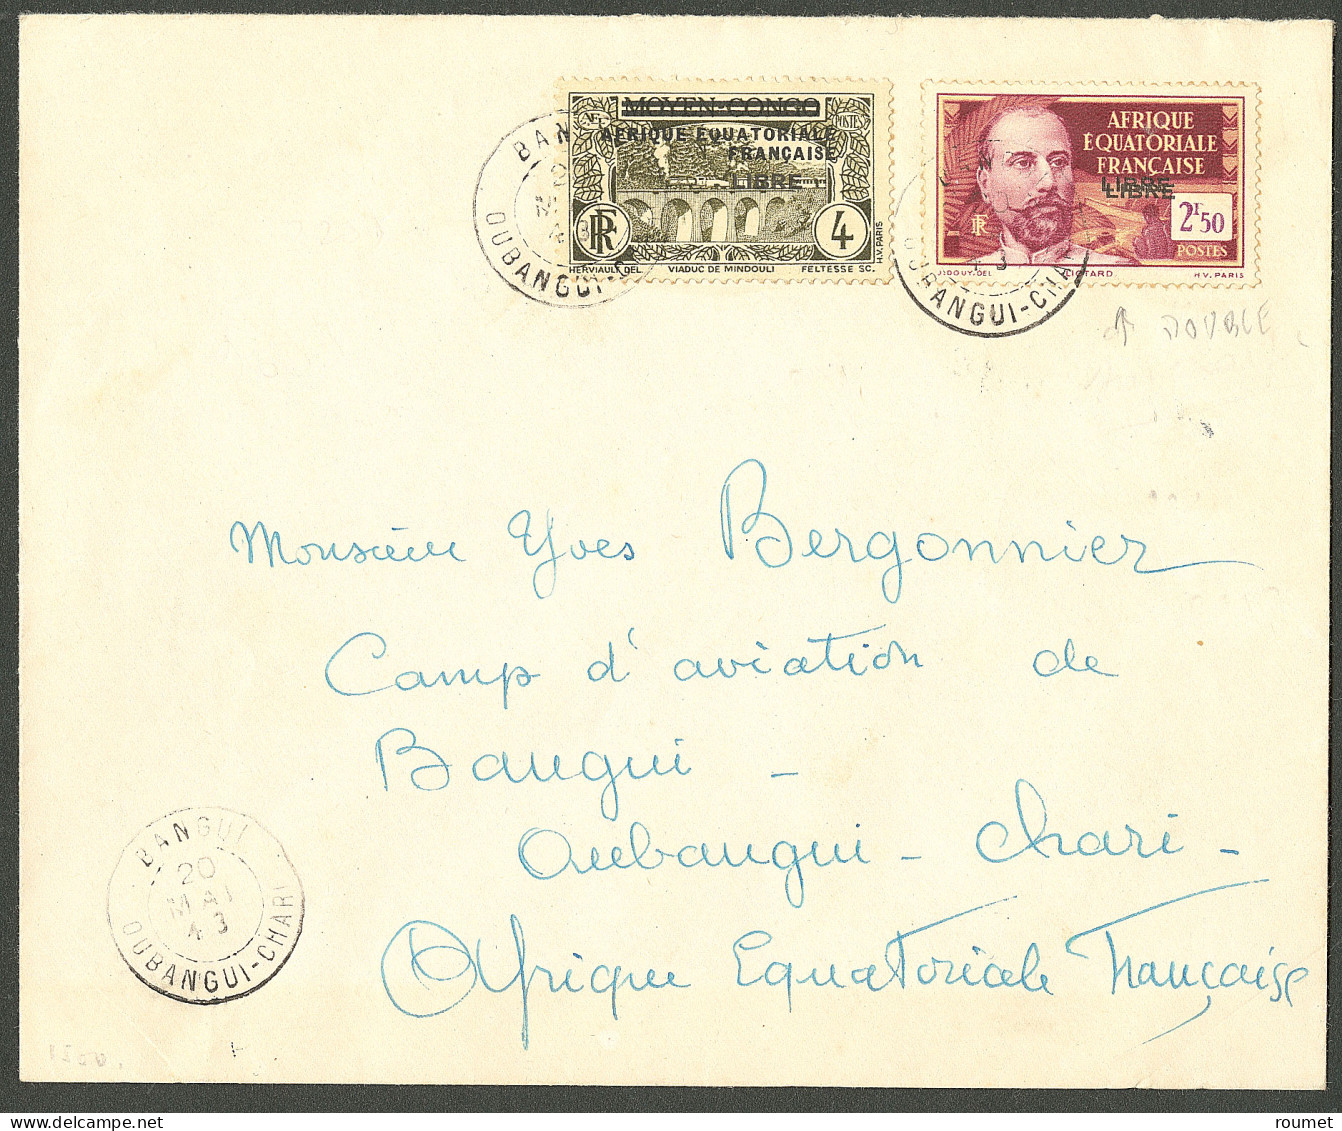 MOYEN-CONGO
AFRIQUE ÉQUATORIALE
FRANÇAISE
LIBRE
POSTES
RF
4
H.V. PARIS
HERVIAULT DEL. VIADUC DE MINDOULI FELTESSE SC.
AFRIQUE
ÉQUATORIALE
FRANÇAISE
LIBRE
LIBRE
RF
2F50
POSTES
J. DOUY. DEL H V. PARIS
BAN
OUBANGUI-
OUBANGUI-CHA
↑ DOUBLE
Monsieur Yves Bergonnier
Camp d'aviation de
Bangui -
Oubangui - Chari -
Afrique Equatoriale Française
BANGUI
20
MAI
43
OUBANGUI-CHARI
roumet